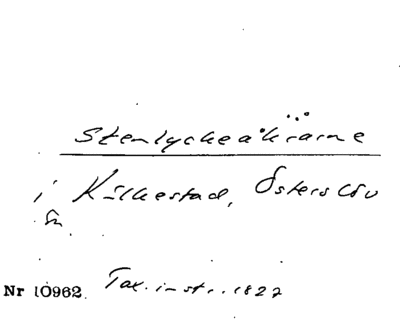 Stenlyckeåkrarne
i Källestad, Östers löv
sn.
Nr 10962. Tax. instr. 1822